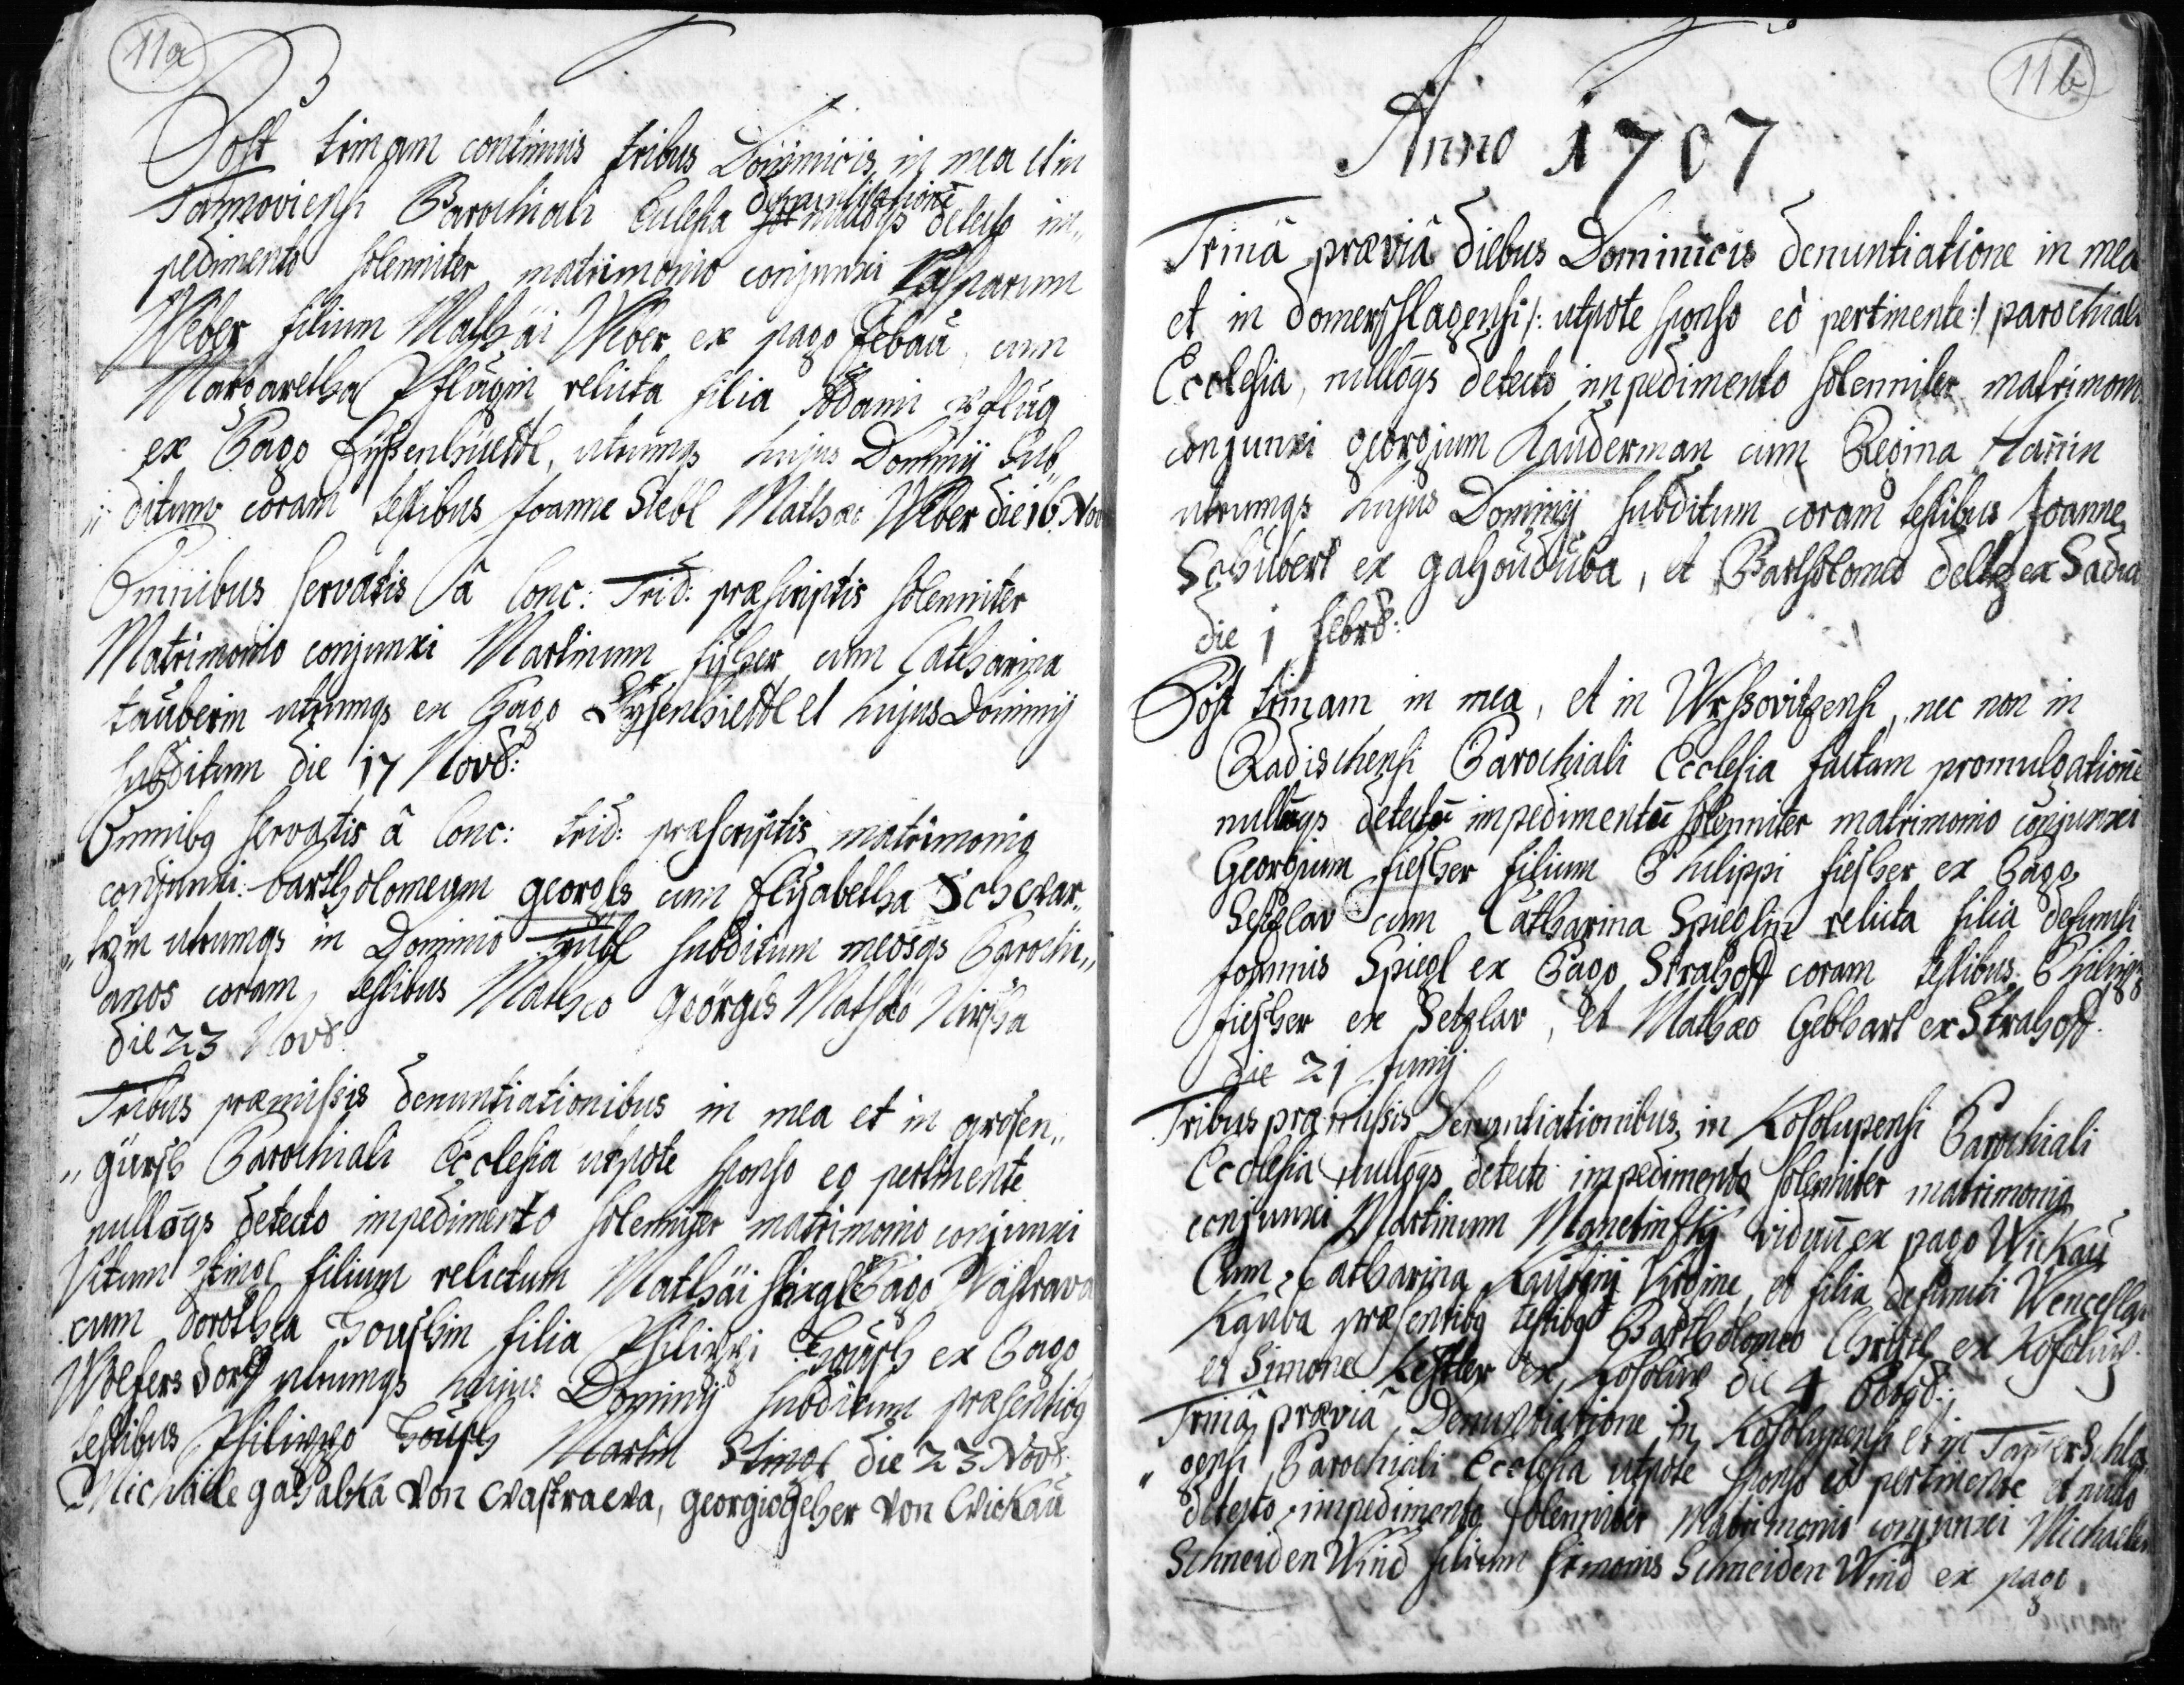 11a
Post trinam continuis tribus Dominicis in mea et in
denuntiatione
Parochiali Eclesia nullõqs detecto im„
pedimento solenniter matrimonio conjunxi Casparum
Weber filium Mathäi Weber ex pago cum
Margaretha Pflugin relicta filia Adami Pflug
ex Pago utrumqs hujus Dominij sub„
ditum coram testibus Joanne Stebl Mathæo Weber die 16 Nov
Omnibus servatis â Conc: Trid: præscriptis solenniter
Matrimonio conjunxi Martinum fisher cum Catharina
tauberin utrumqs ex Pago et hujus Dominij
subditum die 17 Novb:
Omnibq servatis â Conc: trid: præscriptis matrimonio
conjunxi bartholomeum georgls cum Elisabetha Schwar„
„tzin utrumqs in Dominio subditum meosqs Parochi„
anos coram testibus Mathæo Geörgls Mathæo Nirsha
die 23 Novb
Tribus præmissis denuntiationibus in mea et in grosen„
„gürsh Parochiali Ecclesia utpote sponso eo pertinente
nullõqs detecto impedimento solenniter matrimonio conjunxi
Vitum Stingl filium relictum Mathäi Stingl Pago Wastrava
cum dorothea houshin filia Philippi housh ex Pago
Wolfersdorff utrumqs hujus Dominij subditum præsentibq
testibus Philippo housh Martin Stingl die 23 Novb:
Michäele gahabka von Wastraewa, georgio von Wickau
11b
Anno 1707
Trinâ præviâ diebus Dominicis denuntiatione in mea
et in domershlagensi /: utpote sponso eò pertinente :/ parochiali
Ecclesia, nullõqs detecto impedimento solenniter matrimonio
conjunxi georgium Kauderman cum Regina Hanin
utrumqs hujus Dominij subditum coram testibus Joanne
Schubert ex gahouduba, et Bartholomeo ex
die 1 febrb:
Post trinam in mea, et in Wrssovitzensi, nec non in
Radischensi Parochiali Ecclesia factam promulgatione
nullõqs detecto impedimento solenniter matrimonio conjunxi
Georgium fiesher filium Philippi fiesher ex Pago
Setzlav cum Catharina Spieglin relicta filia defuncti
Joannis Spiegl ex Pago Strahoff coram testibus Philippo
fiesher ex Setzlav, et Mathæo Gebhart ex Strahoff
die 21 Junij
Tribus præmissis Denuntiationibus in Kosolupensi Parochiali
Ecclesia nullõqs detecto impedimento solenniter matrimonio
conjunxi Martinum viduũ ex pago Wickau
Cum Catharina Virgine, et filia defuncti Wenceslai
Kauba præsentibq testibq Bartholomeo Christl ex Kosolup
et Simone Kestler ex Kosolup die 4
Trinâ præviâ Denuntiatione in Kosolupensi et in Tamerschla„
„gensi Parochiali Ecclesia utpote sponso eò pertinente et nullo
detecto impedimento solenniter Matrimonio conjunxi Michaelem
SchneidenWind filium Simonis SchneidenWind ex pago